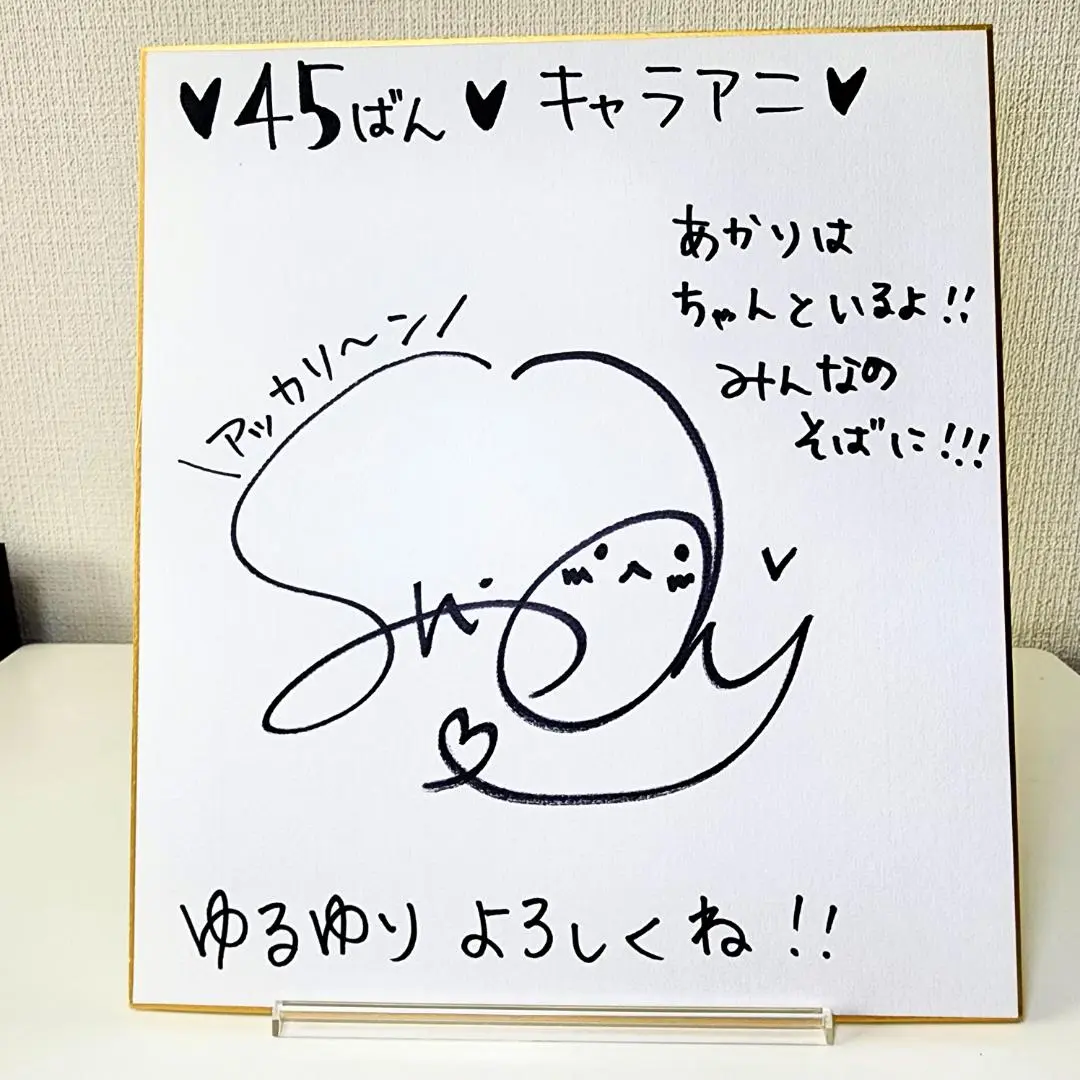 ♥45ばん♥キャラアニ♥
あかりは
ちゃんといるよ!!
みんなの
そばに!!!
\アッカリ〜ン/
ゆるゆり よろしくね!!